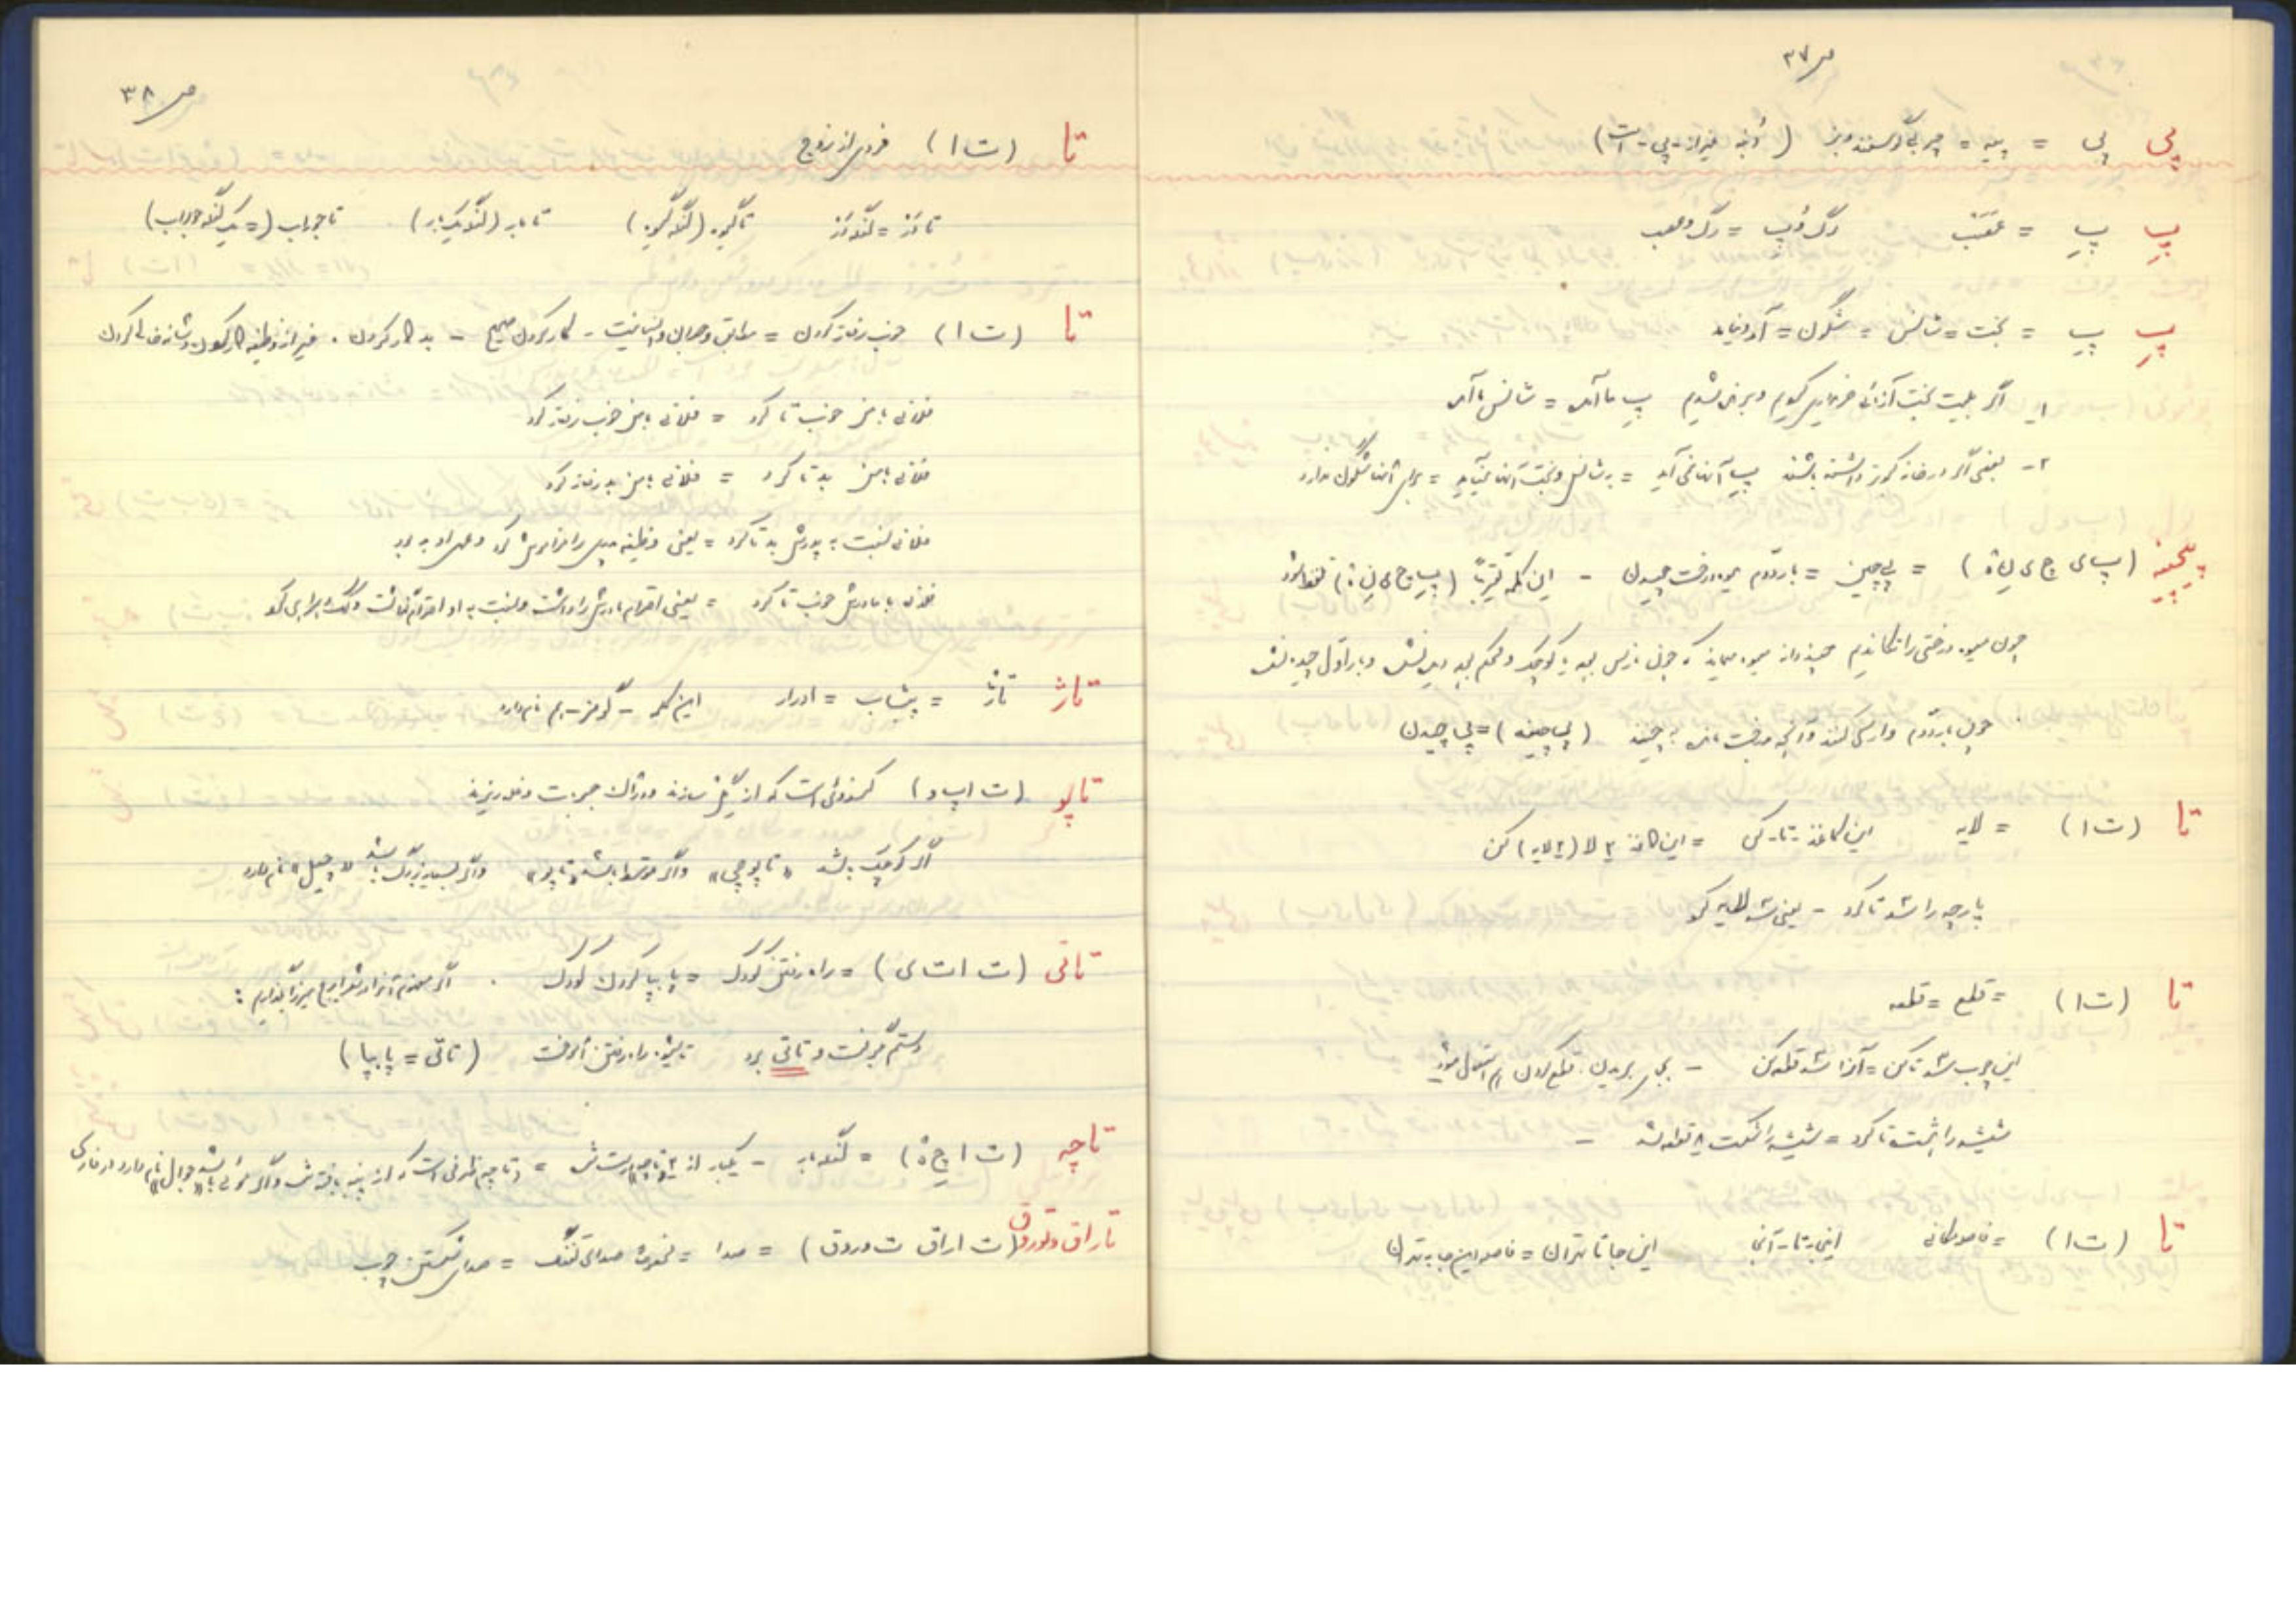 ص ۳۷
پی پی = پیه = چربی گوسفند و بز (دنبه غیر از پی است)
پِ پِ = عقب رگ و پِ = رگ و عصب
پِ پِ = بخت = شانس = شگون = آمد و نیامد
۱- اگر بلیت بخت آزمائی خریداری کردیم و برنده شدیم پِ ما آمد = شانس ما آمد
۲- بعضی اگر در خانه کبوتر داشته باشند پِ آنان نمی آید = به شانس و بخت آنان نمیآید = برای آنان شگون ندارد
پیچینه (پ ای چ ی ن ة) = پی چین = بار دوم میوه درخت چیدن - این کلمه تقریباً تلفظ شود
چون میوه درختی را تکاندیم چند دانه میوه میماند که چون نارس بوده یا کوچک و محکم بوده و بار اول چیده نشد
چون بار دوم وارسی کنند و آنچه در درخت مانده بچینند (پی چینه) = پی چیدن
تا (ت ا) = لایه این کاغذ - تا - کن = این کاغذ ۲ لا (۲ لایه) کن
پارچه را شد تا کرد - یعنی شد لایه کرد
تا (ت ا) = قطع = قطعه
این چوب شد تا کن = آنرا شد قطعه کن - بجای بریدن قطع کردن هم استعمال میشود
شیشه را هشت تا کرد = شیشه را شکست ۸ قطعه شد -
تا (ت ا) = فاصله مکانی اینجا - تا - آنجا این جا تا تهران = فاصله این جا به تهران
ص ۳۸
تا (ت ا) فردی از زوج
تا رَز = لنگه رَز تا گیوه (لنگه گیوه) تا بار (لنگه یک بار) تا جوراب (= یک لنگه جوراب)
تا (ت ا) خوب رفتار کردن = مطابق وجدان و انسانیت - کار کردن صحیح - بد کار کردن . غیر از وظیفه کار کردن و شانه خالی کردن
فلانی با من خوب تا کرد = فلانی با من خوب رفتار کرد
فلانی با من بد تا کرد = فلانی با من بد رفتار کرد
فلانی نسبت به پدرش بد تا کرد = یعنی وظیفه پدری را فراموش کرد
فلانی با مادرش خوب تا کرد = یعنی احترام مادرش را داشت و نسبت به او احترام گذاشت
تاژ تاژ = پیشاب = ادرار این کلمه - گومز - هم نام دارد
تاپو (ت ا پ و) کندوئی است که از گل سازند و در آن حبوبات و غله ریزند
اگر کوچک باشد «تاپوچی» و اگر متوسط باشد «تاپو» و اگر بسیار بزرگ باشد نام دارد
تاتی (ت ا ت ی) = راه رفتن کودک = پا بپا کردن کودک .
دستم بگرفت و تاتی برد تا شیوه راه رفتن آموخت (تاتی = پا بپا)
تاچه (ت ا چ ة) = لنگه بار - یکبار از ۲ تاچه درست شد = (تاچه ظرفی است که از پنبه بافته شده و اگر موئی باشد «جوال» نام دارد در فارسی
تاراق و توروق (ت ا ر ا ق ت و ر و ق) = صدا = نمونه صدای تفنگ = صدای شکستن چوب